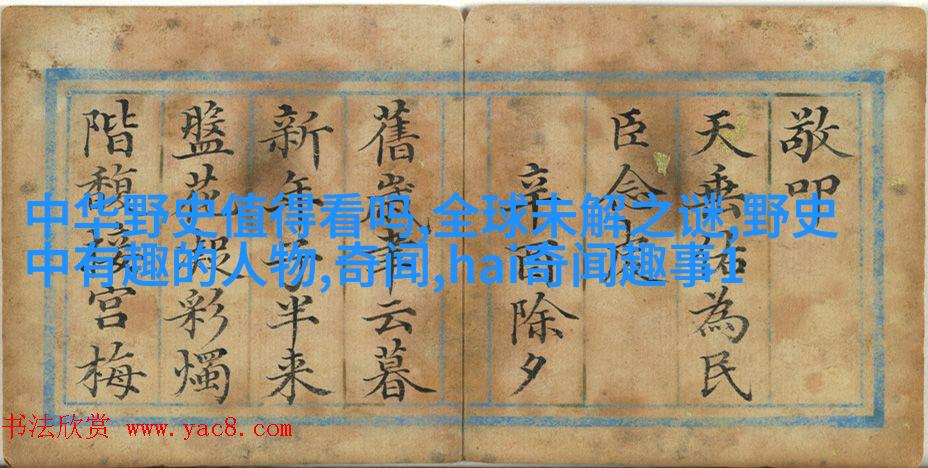 敬叩
天垂祐為民
臣念
辛酉除夕
舊歲聿云暮
新年子半来
盤花彩燭
階馥接宮梅
中华野史值得看吗,全球未解之谜,野史
中有趣的人物,奇闻,hai奇闻趣事1
书法欣赏 www.yac8.com